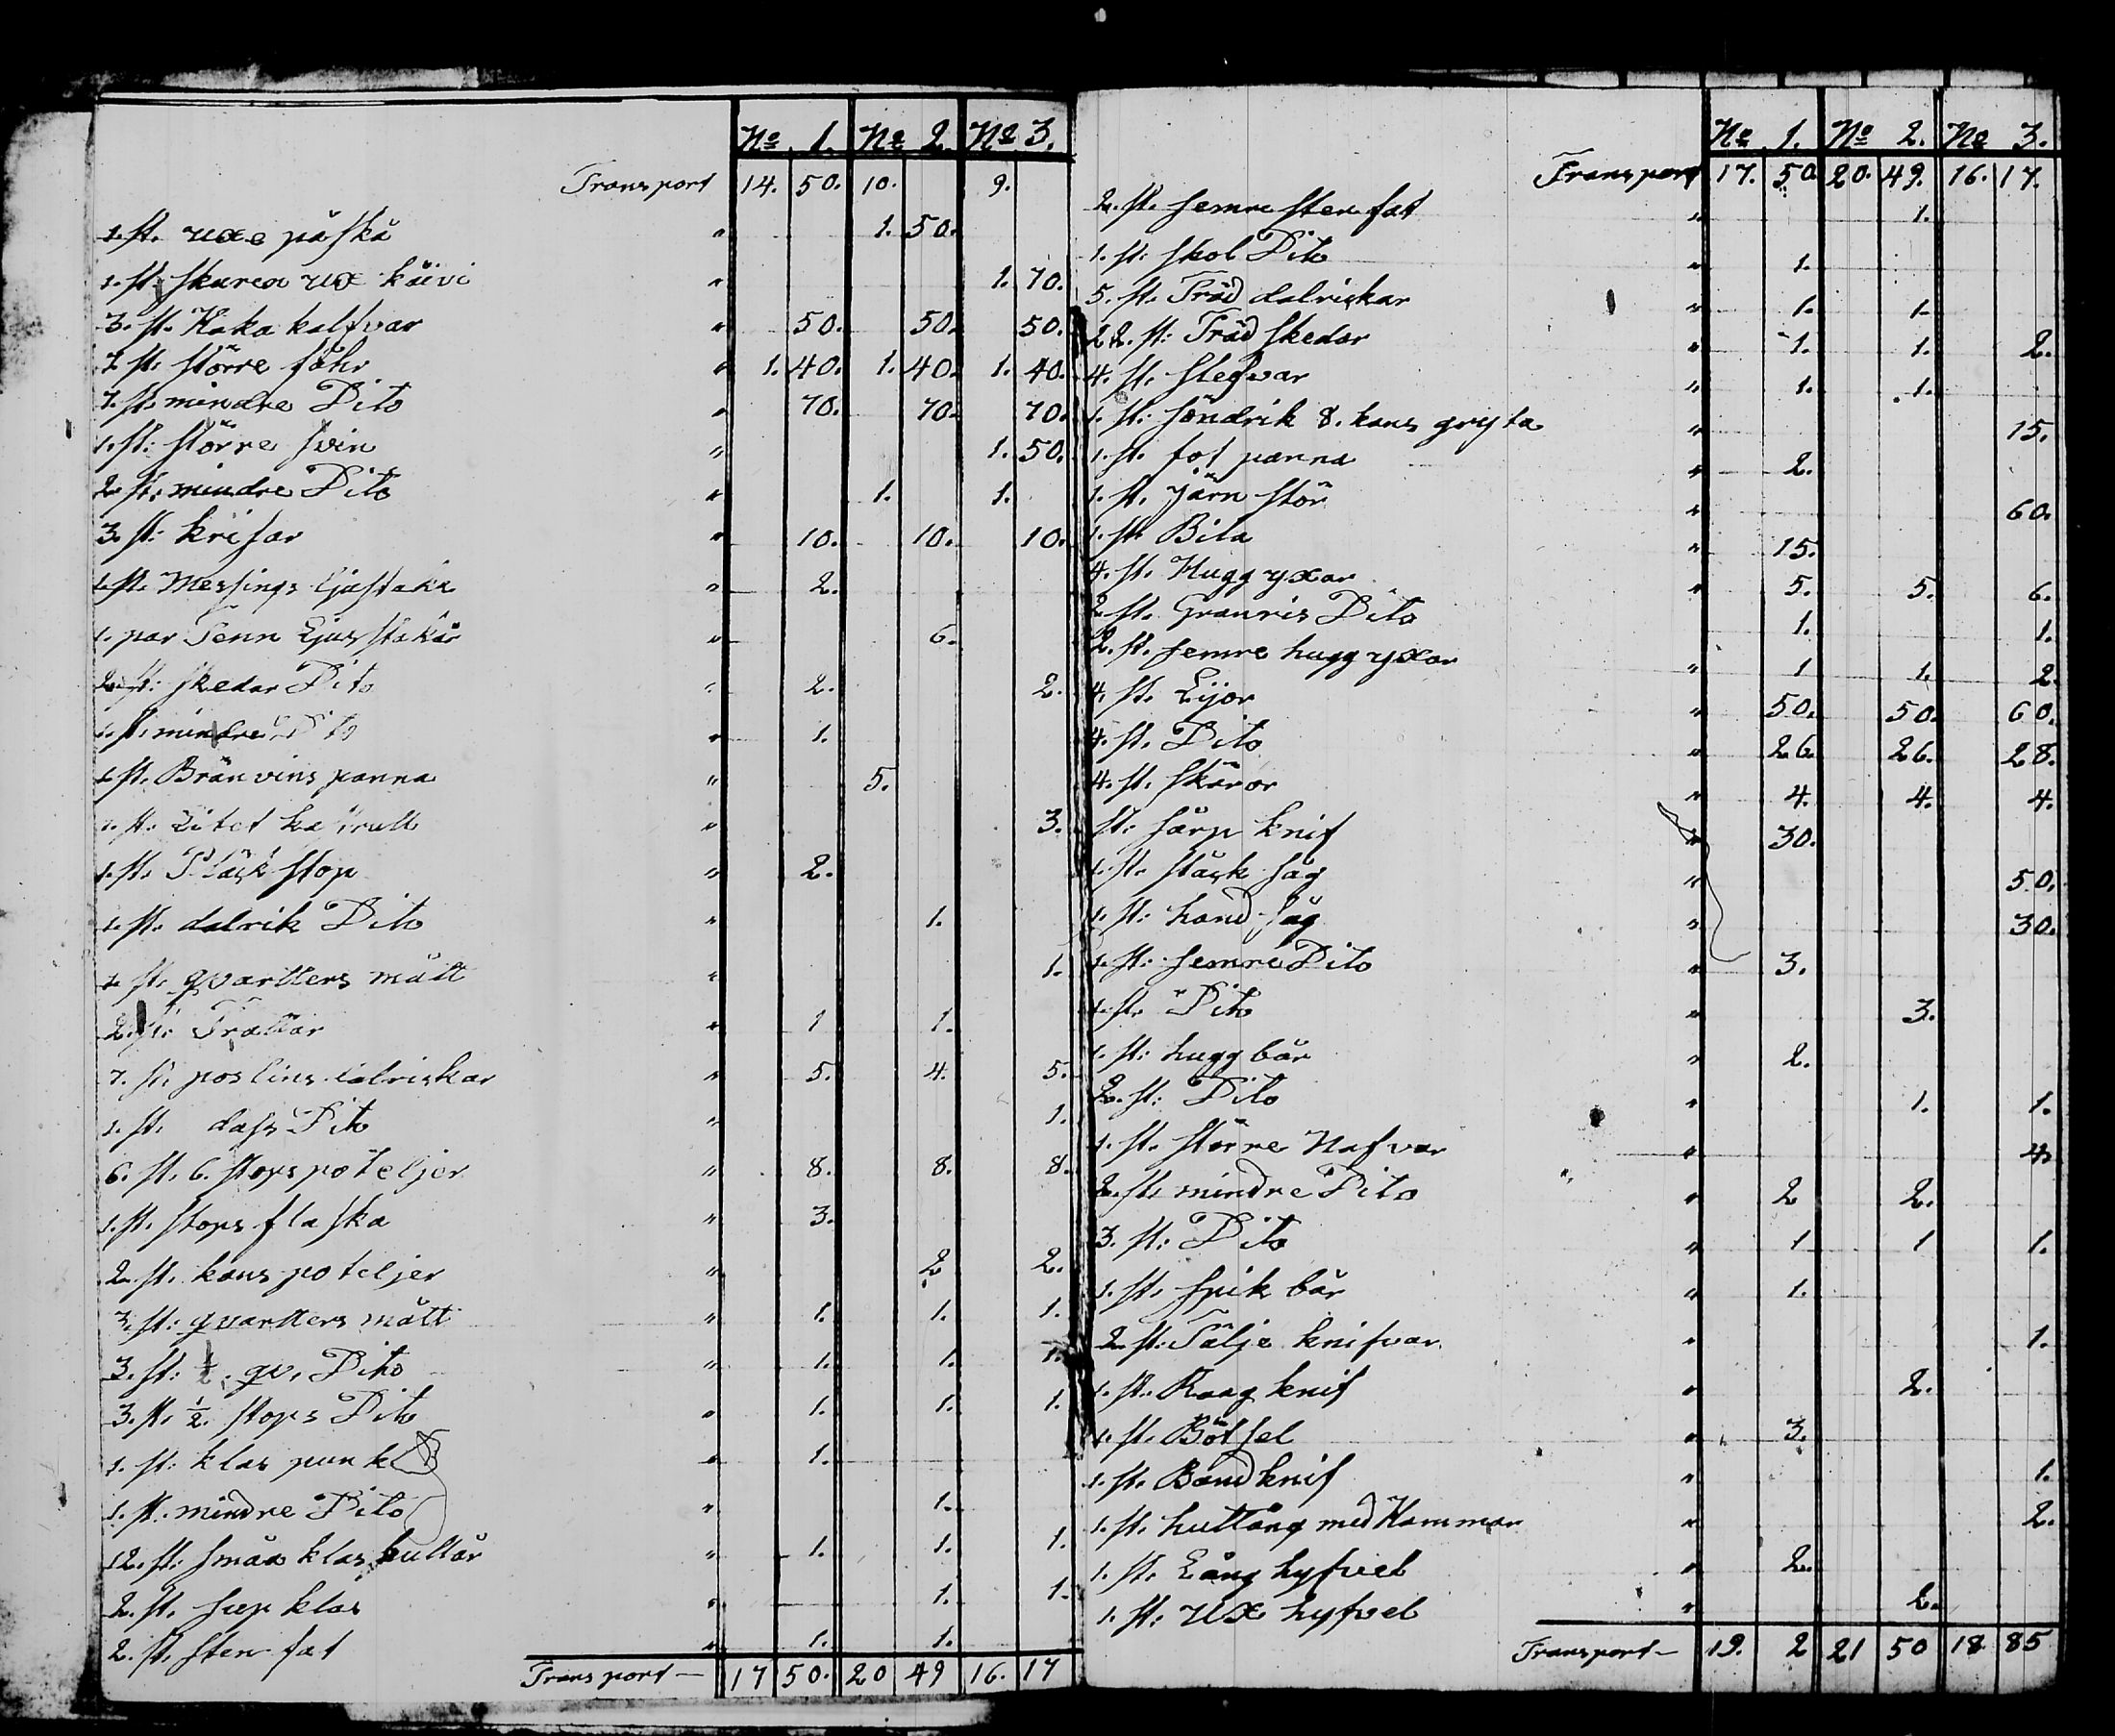 No 1. No 2. No 3.
Transport 14. 50. 10. 9.
1. st. uxe påskå " 1. 50.
1. st. skuren ux kåivi " 1. 70.
3. st. Kaka kalfvar " 50. 50. 50.
7. st. större fåhr " 1. 40. 1. 40. 1. 40.
7. st. mindre Dito " 70. 70. 70.
1. st: större svin " 1. 50.
2. st. mindre Dito " 1. 1.
3. st: krisar " 10. 10. 10.
1. st. Messings ljustaka " 2.
1. par Tenn Ljusstakår " 6.
2. st: skedar Dito " 2. 2.
1. st. mindre Dito " 1.
1. st. Brän vins panna " 5.
1. st. Litet " 3.
1. st. Bläck stop " 2.
1. st. dalrik Dito " 1.
1. st. qvartters mått " 1.
2. st. Trattar " 1 1.
7. st. poslins talriskar " 5. 4. 5.
1. st. dass Dito " 1.
6. st. 6. stops poteljer " 8. 8. 8.
1. st. stops flaska " 3.
2. st. kans poteljer " 2 2.
3. st: qvartters mått " 1. 1. 1.
3. st: ½. qv. Dito " 1. 1. 1.
3. st. ½. stops Dito " 1. 1. 1.
1. st: klas punk " 1.
1. st. mindre Dito " 1.
12. st: småa klas buttår " 1. 1. 1.
2. st. sup klas " 1. 1.
2. st. sten fat " 1. 1.
Transport — 17 50. 20 49 16. 17
No 1. No 2. No 3.
Transport 17. 50 20. 49. 16. 17.
2. st. semre sten fat " 1.
1. st: skol Dito " 1.
5. st. Träd dalriskar " 1. 1.
22. st: Träd skedar " 1. 1. 2.
4. st. slefvar " 1. 1.
1. st: söndrik 8. kans gryta " 15.
1. st. fot panna " 2.
1. st. järn stör " 60.
1. st. Bila " 15.
4. st. Hugg yxor " 5. 5. 6.
2. st. Granris Dito 1. 1.
2. st. semre hugg yxor " 1 1. 2
4. st. Lijor " 50. 50. 60.
4. st. Dito " 26. 26. 28.
4. st. skäror " 4. 4. 4.
st: särp knif " 30.
1. st. stäck såg " 50.
1. st: hand såg " 30.
1. st: semre Dito " 3.
1. st. Dito " 3.
1. st: hugg bår " 2.
2. st: Dito " 1. 1.
1. st. större Nafvar " 4.
2. st. mindre Dito " 2 2.
3. st: Dito " 1 1 1.
1. st. spik bår " 1.
2. st: Tälje knifvar " 1.
1. st. Rang knif " 2.
1. st. Bötsel " 3.
1. st. Band knif " 1.
1. st. huttång med Hammar " 2.
1. st. Lång hyfvel " 2.
1. st: ux hyfvel " 2.
Transport — 19. 2 21 50 18 85